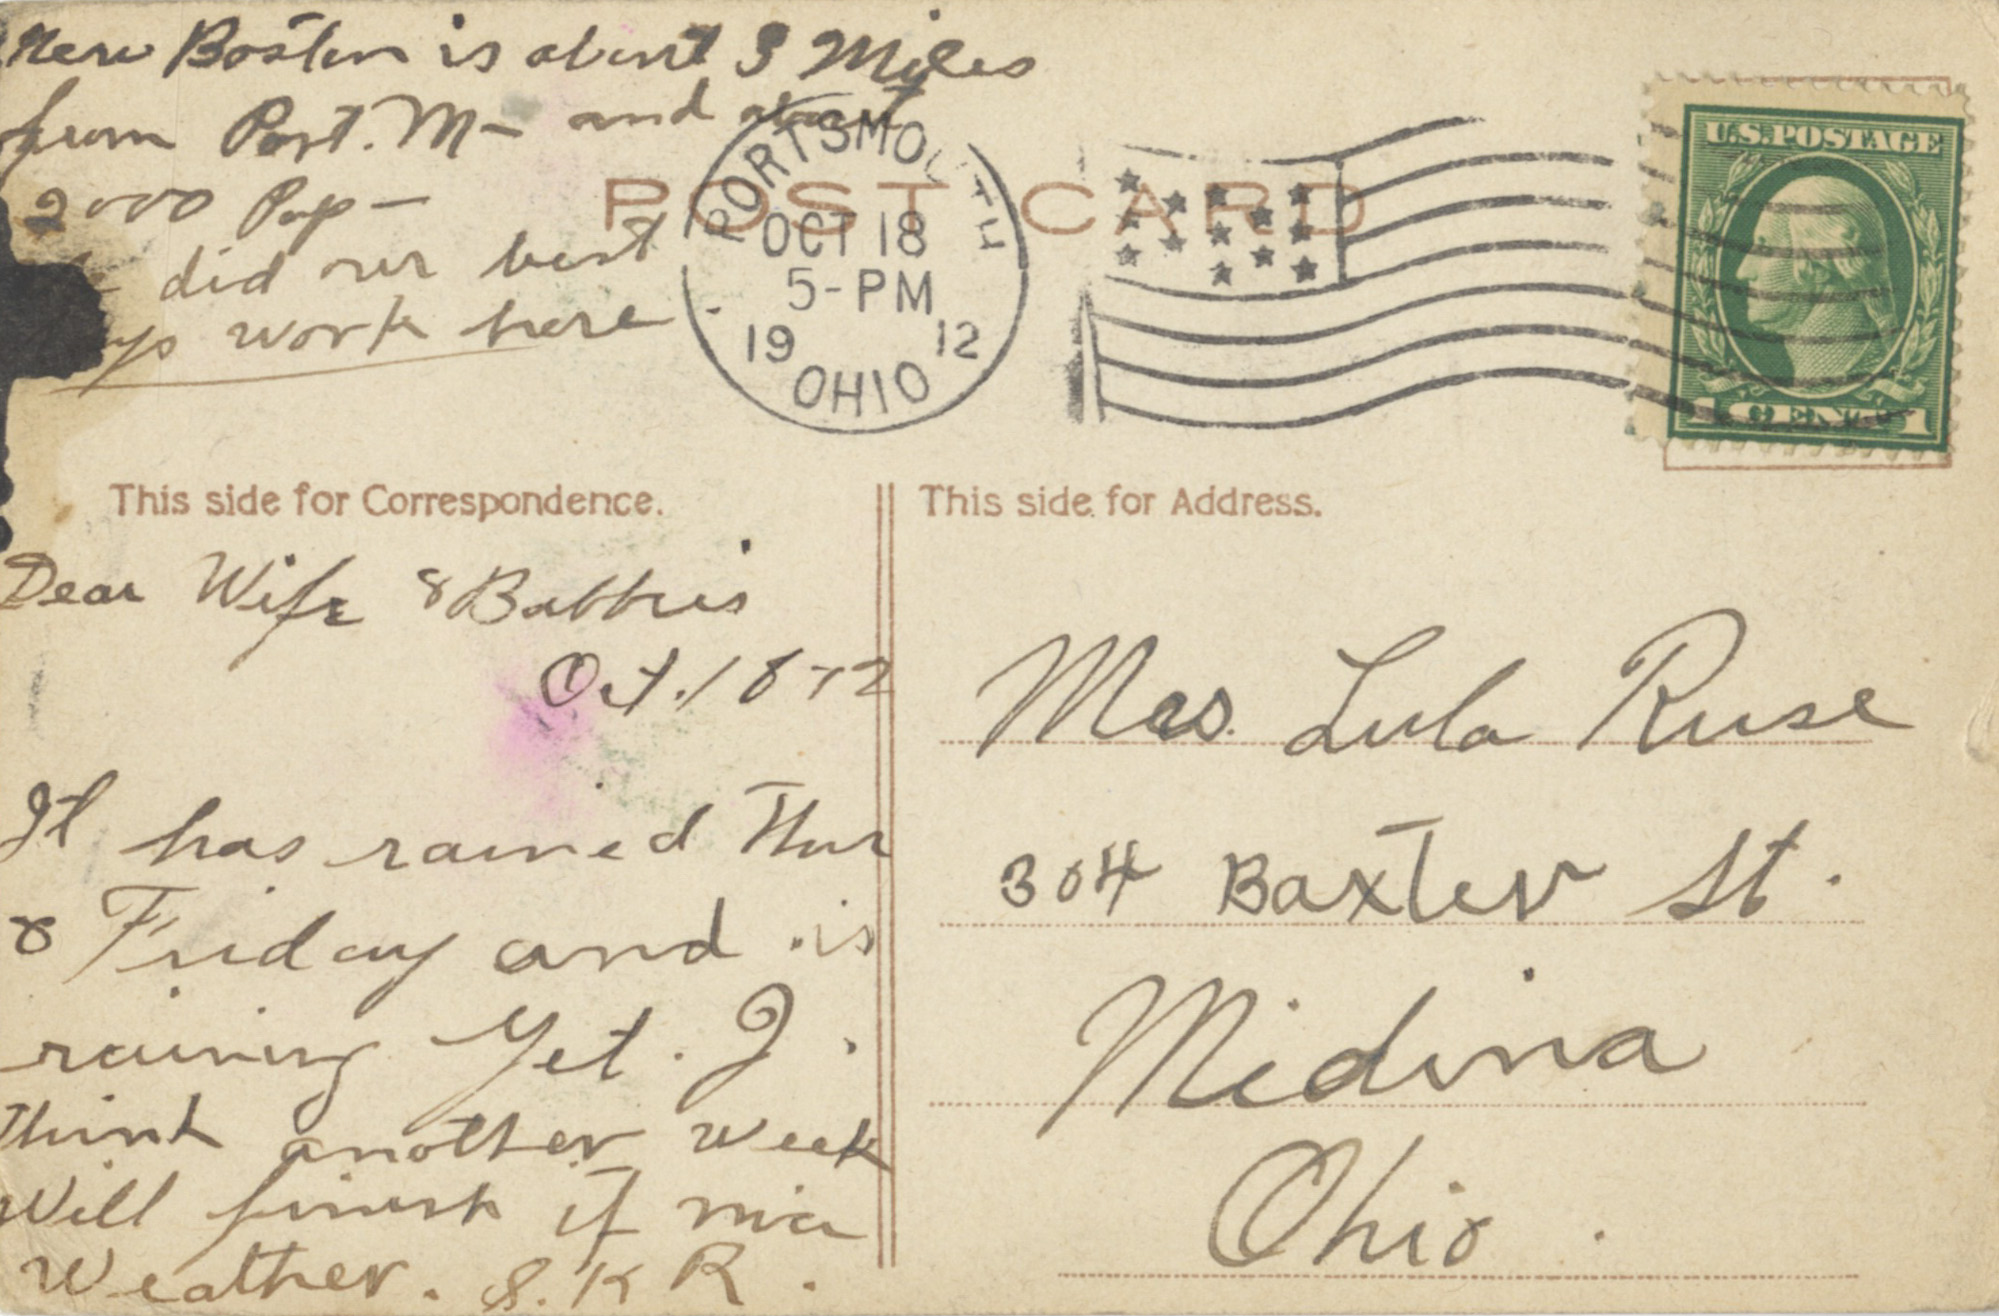 New Boston is about 3 Miles
from Port. M- and about
2000 Pop-
did our best
work here.
POST CARD
PORTSMOUTH
OCT 18
5-PM
1912
OHIO
U.S. POSTAGE
1 CENT 1
This side for Correspondence.
This side for Address.
Dear Wife & Babbies
Oct. 18-12
It has rained Thur
& Friday and is
raining Yet. I
Think another week
Will finish if nice
Weather. S.K R.
Mrs. Lula Ruse
304 Baxter St.
Midina
Ohio.